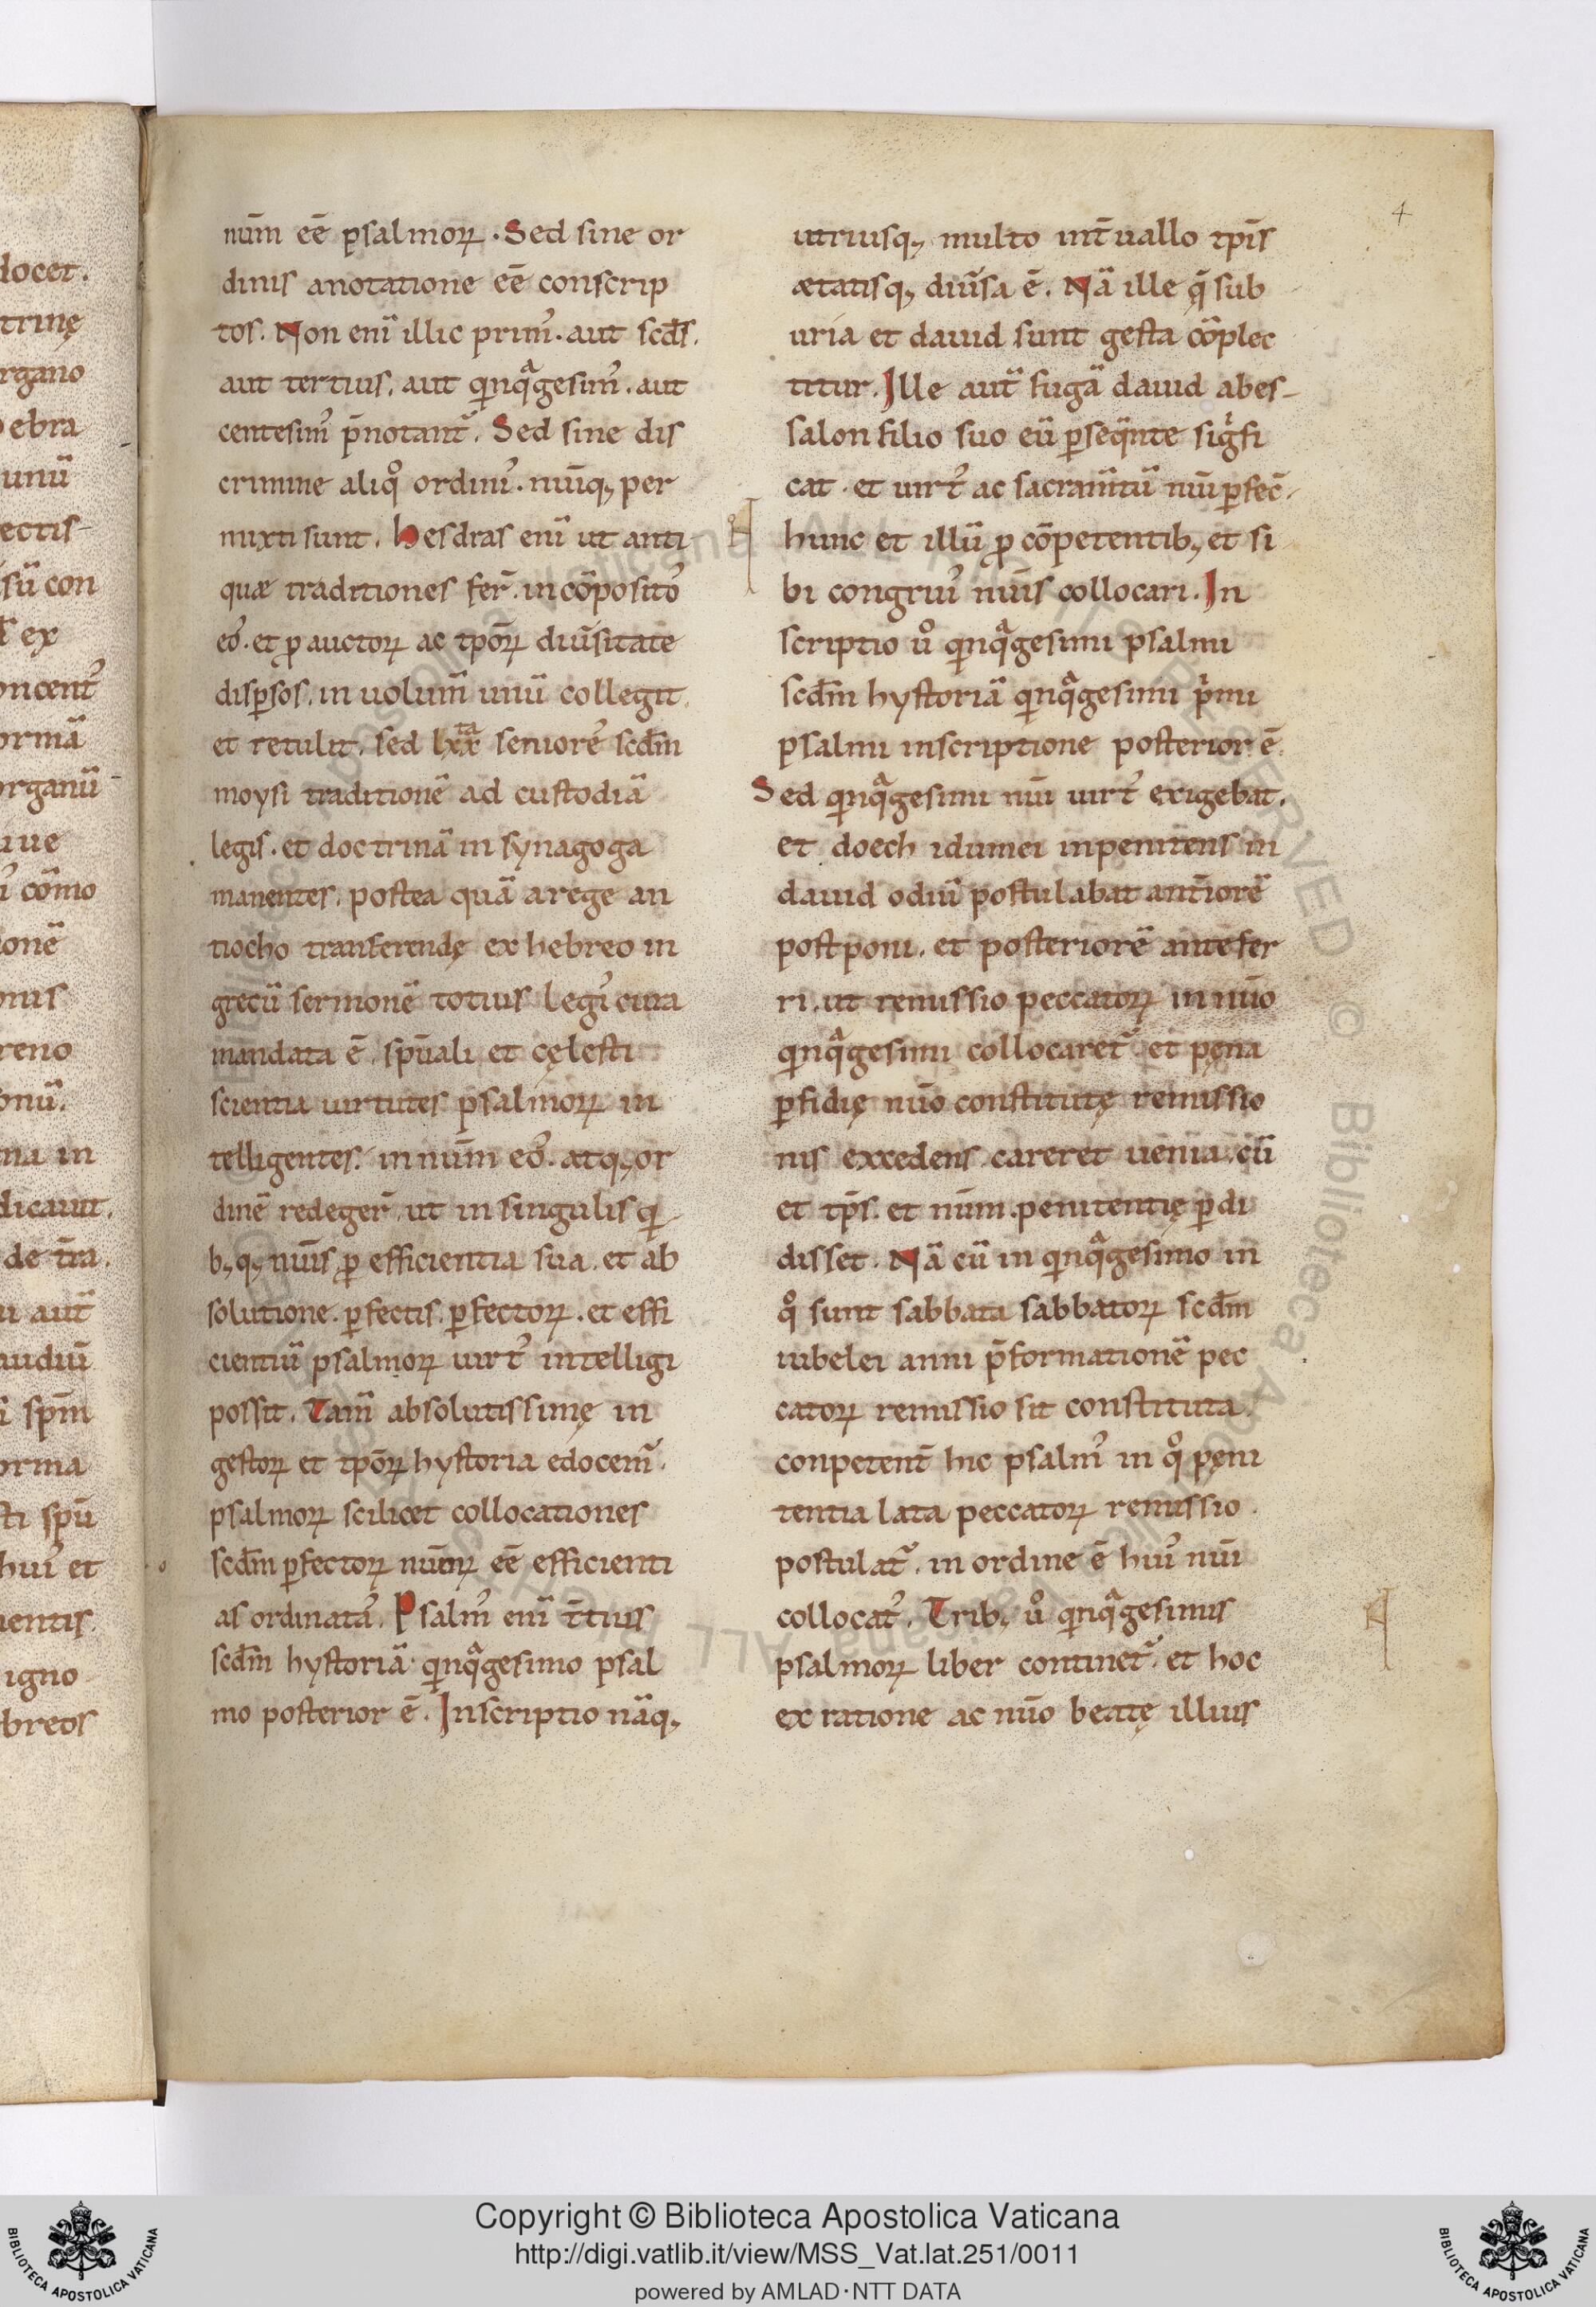 4
docet.
trinę
rgano
ebra
unū
ectis
sū con
ex
oncent᾽
ormā
organū
uue
cōmo
onē
onis
reno
onū.
na in
dicauit.
de tr̄a.
ui aut̄
audiui
spm̄
orma
sti spū
hui᾽ et
uentis.
igno
breos
num̄ eē psalmoꝝ. Sed sine or
dinis anotatione eē conscrip
tos. Non enī illic prim᾽. aut scd̄s.
aut tertius. aut qinqᵃgesim᾽. aut
centesim᾽ p̄notant᷑. Sed sine dis
crimine aliqͦ ordini᾽. nūiqꝫ per
mixti sunt. hesdras enī ut anti
quæ traditiones fer̄. incōposito᾽
eo᾽. et ꝓ auctoꝝ ac tpōꝝ diūsitate
disꝑsos. in uolum̄ unū collegit.
et retulit. sed lxxᵗᵃ seniore᾽ scdm̄
moysi traditionē ad custodiā
legis. et doctrinā in synagoga
manentes. postea quā a rege an
tiocho transferendę ex hebreo in
grecū sermonē totius legi᾽ cura
mandata ē. spūali et cęlesti
scientia uirtutes psalmoꝝ in
telligentes. in num̄ eo᾽. atqꝫ or
dinē redeger̄. ut in singulis qi
bꝫqꝫ nūis ꝓ efficientia sua. et ab
solutione. ꝑfectis. ꝑfectoꝝ. et effi
cientiū psalmoꝝ uirt᾽ intelligi
possit. Tam̄ absolutissimę in
gestoꝝ et tpōꝝ hystoria edocem᷑.
psalmoꝝ scilicet collocationes
scdm̄ ꝑfectoꝝ num̄oꝝ eē efficienti
as ordinata᾽. Psalm᾽ enī t̄tius
scdm̄ hystoriā qinqᵃgesimo psal
mo posterior ē. Inscriptio nāqꝫ
utriusqꝫ multo int̄uallo tpīs
ætatisqꝫ diūsa ē. Nā ille q̄ sub
uria et dauid sunt gesta cōplec
titur. Ille aut̄ fugā dauid abes-
salon filio suo eū ꝑseqᵉnte sigͥfi
cat. et uirt᾽ ac sacram̄tū nūi ꝑfec̄
hunc et illū ꝓ cōpetentibꝫ et si
bi congrui᾽ nūis collocari. In
scriptio uͦ qinqᵃgesimi psalmi
scdm̄ hystoriā qinqᵃgesimi pͥmi
psalmi inscriptione posterior ē.
Sed qinqᵃgesimi nūi uirt᾽ exigebat.
et doech idumei inpenitens in
dauid odiū postulabat ant̄iorē
postponi. et posteriorē antefer
ri. ut remissio peccatoꝝ in nūo
qinqᵃgesimi collocaret᷑. et pęna
ꝑfidię nūo constitutę remissio
nis exxedens careret uenia. cū
et tps̄. et num̄ penitentię ꝑdi
disset. Nā cū in qinqᵃgesimo in
qͦ sunt sabbata sabbatoꝝ scdm̄
iubelei anni p̄formationē pec
catoꝝ remissio sit constituta.
conpetent̄ hic psalm᾽ in qͦ pęni
tentia lata peccatoꝝ remissio
postulat᷑. in ordine ē hui᾽ nūi
collocat᾽. Tribꝫ uͦ qinqᵃgesimis
psalmoꝝ liber continet᷑. et hoc
ex ratione ac nūo beatę illius
Copyright © Biblioteca Apostolica Vaticana
http://digi.vatlib.it/view/MSS_Vat.lat.251/0011
powered by AMLAD·NTT DATA
BIBLIOTECA APOSTOLICA VATICANA
BIBLIOTECA APOSTOLICA VATICANA